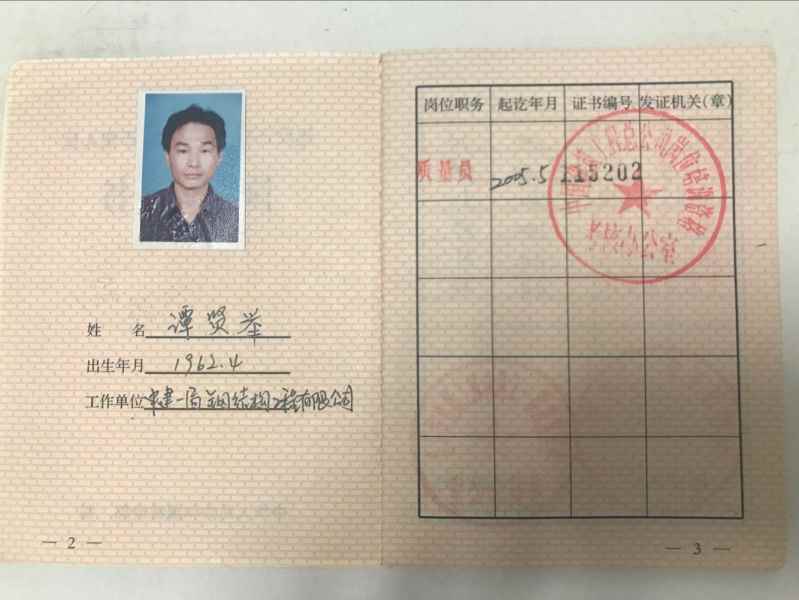 姓 名 谭贤举
出生年月 1962.4
工作单位 中建一局钢结构工程有限公司
— 2 —
岗位职务 起讫年月 证书编号 发证机关(章)
质量员 2005.5 115202
— 3 —